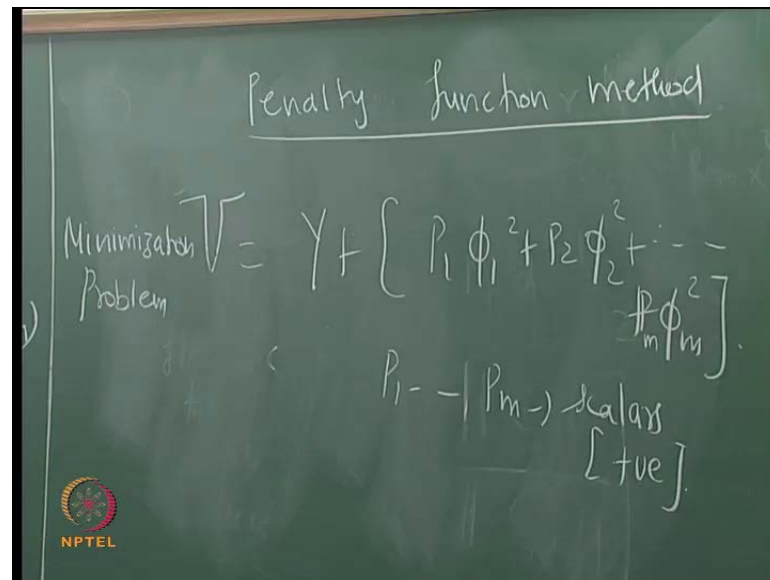 Penalty function method
Minimization Problem V = Y + [ P₁ ϕ₁² + P₂ ϕ₂² + - - -
+ Pₘ ϕₘ² ].
P₁ - - | Pₘ → scalars
[ +ve ].
NPTEL